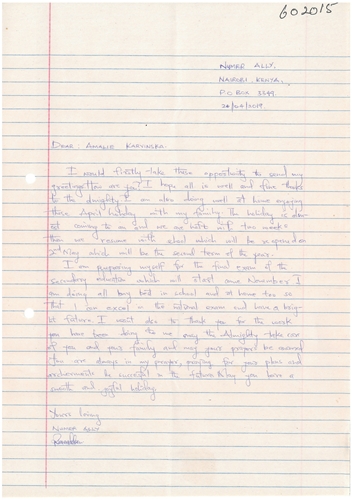 602015
NAMER ALLY.
NAIROBI KENYA.
P.O BOX 3249.
28/04/2019.
DEAR AMALIE KARVINSRA.
I would firstly take these opportunity to send my
greetings How are you? I hope all is well and fine thanks
to the almighty I am also doing well at home enjoying
these April holiday with my family. The holiday is al-
coming to an end we are left with two weeks
then we resume with school which will be
2nd May which will be the second term of the year.
I am preparing myself for the final exam of the
secondary education which will start on November I
am doing all my best in school and at home too so
that I can excel in the national exam and have a brig-
ht future. I want also to thank you for the work
you have been doing the Almighty take care
of you and your family and may your prayer be
You are always in my prayer, praying for your plans and
achievements be successful in the future May you have a
and joyful holiday.
Yours loving
NAMER ALLY